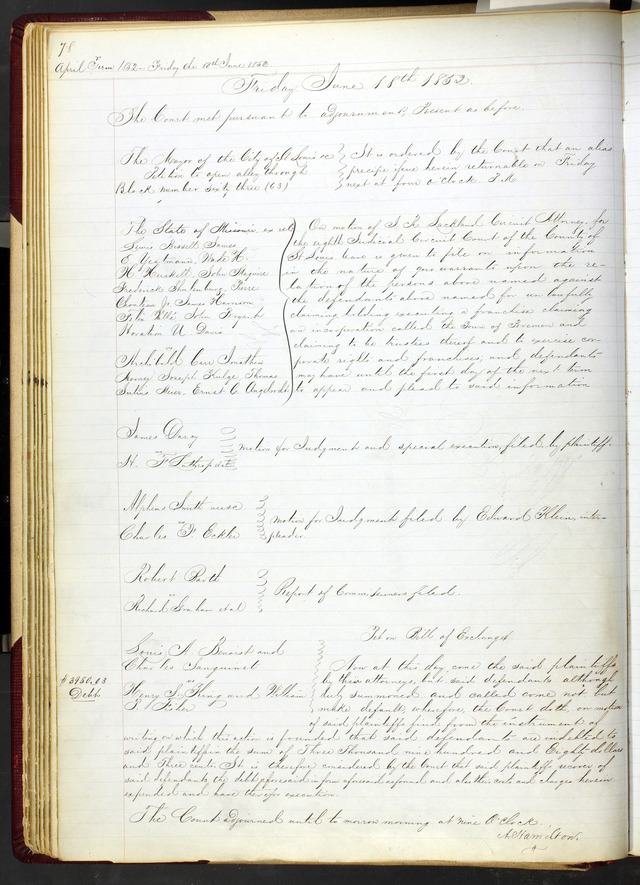 78
April Term 1852 - Friday the 18th June 1852
Friday June 18th 1852.
The Court met pursuant to adjournment, Present as before.
The Mayor of the City of St Louis &c
Petition to open alley through
Block number sixty three (63)
It is ordered by the Court that an alias
precipe issue herein returnable on Friday
next at four o'clock P.M.
The State of Missouri ex rel
Lewis Bissell James
E. Yeatmann, Wade H.
H. Huskell John Maguire
Frederick Pierre
Chouteau Jr. James Harrison
John
Horation N. Davis
Archibald Carr
Joseph Thomas
Julius Ernest C. Angelrodt
On motion of J R Lackland Circuit Attorney for
the eighth Judicial Circuit Court of the County of
St Louis leave is given to file an information
in the nature of quo warranto upon the re-
lation of the persons above named against
the defendants above named for unlawfully
claiming holding executing a franchise claiming
an incorporation called the of Firemen and
claiming to be trustees thereof and to exercise cor-
porate rights and franchises, and defendants
may have until the first day of the next term
to appear and plead to said information
James
H. F. Lathrop et al
motion for Judgment and special execution, filed by plaintiff.
Alpheus Smith use
vs
Charles F. Eckler
motion for Judgment filed by Edward Klein, inter-
pleader.
Robert Barth
vs
Richard Graham et al
Report of Commissioners filed.
Pet on Bill of Exchange
Louis A Benoist and
Charles Sanguinet
vs
Henry and William
Fisher
$3980.03
Debt
Now at this day come the said plaintiffs
by their attorneys, but said defendants although
duly summoned and called come not but
make default, wherefore, the Court doth on motion
of said plaintiffs find from the instrument of
writing on which this action is founded that said defendants are indebted to
said plaintiffs in the sum of Three Thousand nine hundred and Eighty dollars
and Three cents. It is therefore considered by the Court that said plaintiffs recover of
said defendants the debt aforesaid in form aforesaid and also their costs and charges herein
expended and have therefor execution
The Court adjourned until to morrow morning at nine O'Clock.
A. Hamilton.